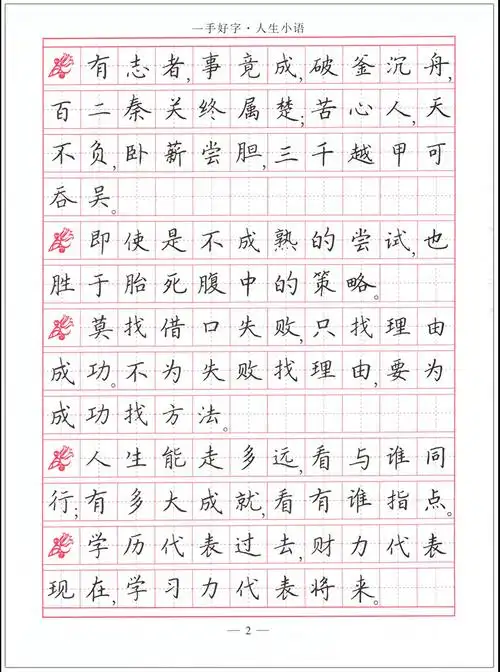 一手好字·人生小语
有志者,事竟成,破釜沉舟,
百二秦关终属楚;苦心人,天
不负,卧薪尝胆,三千越甲可
吞吴。
即使是不成熟的尝试,也
胜于胎死腹中的策略。
莫找借口失败,只找理由
成功。不为失败找理由,要为
成功找方法。
人生能走多远,看与谁同
行;有多大成就,看有谁指点。
学历代表过去,财力代表
现在,学习力代表将来。
— 2 —